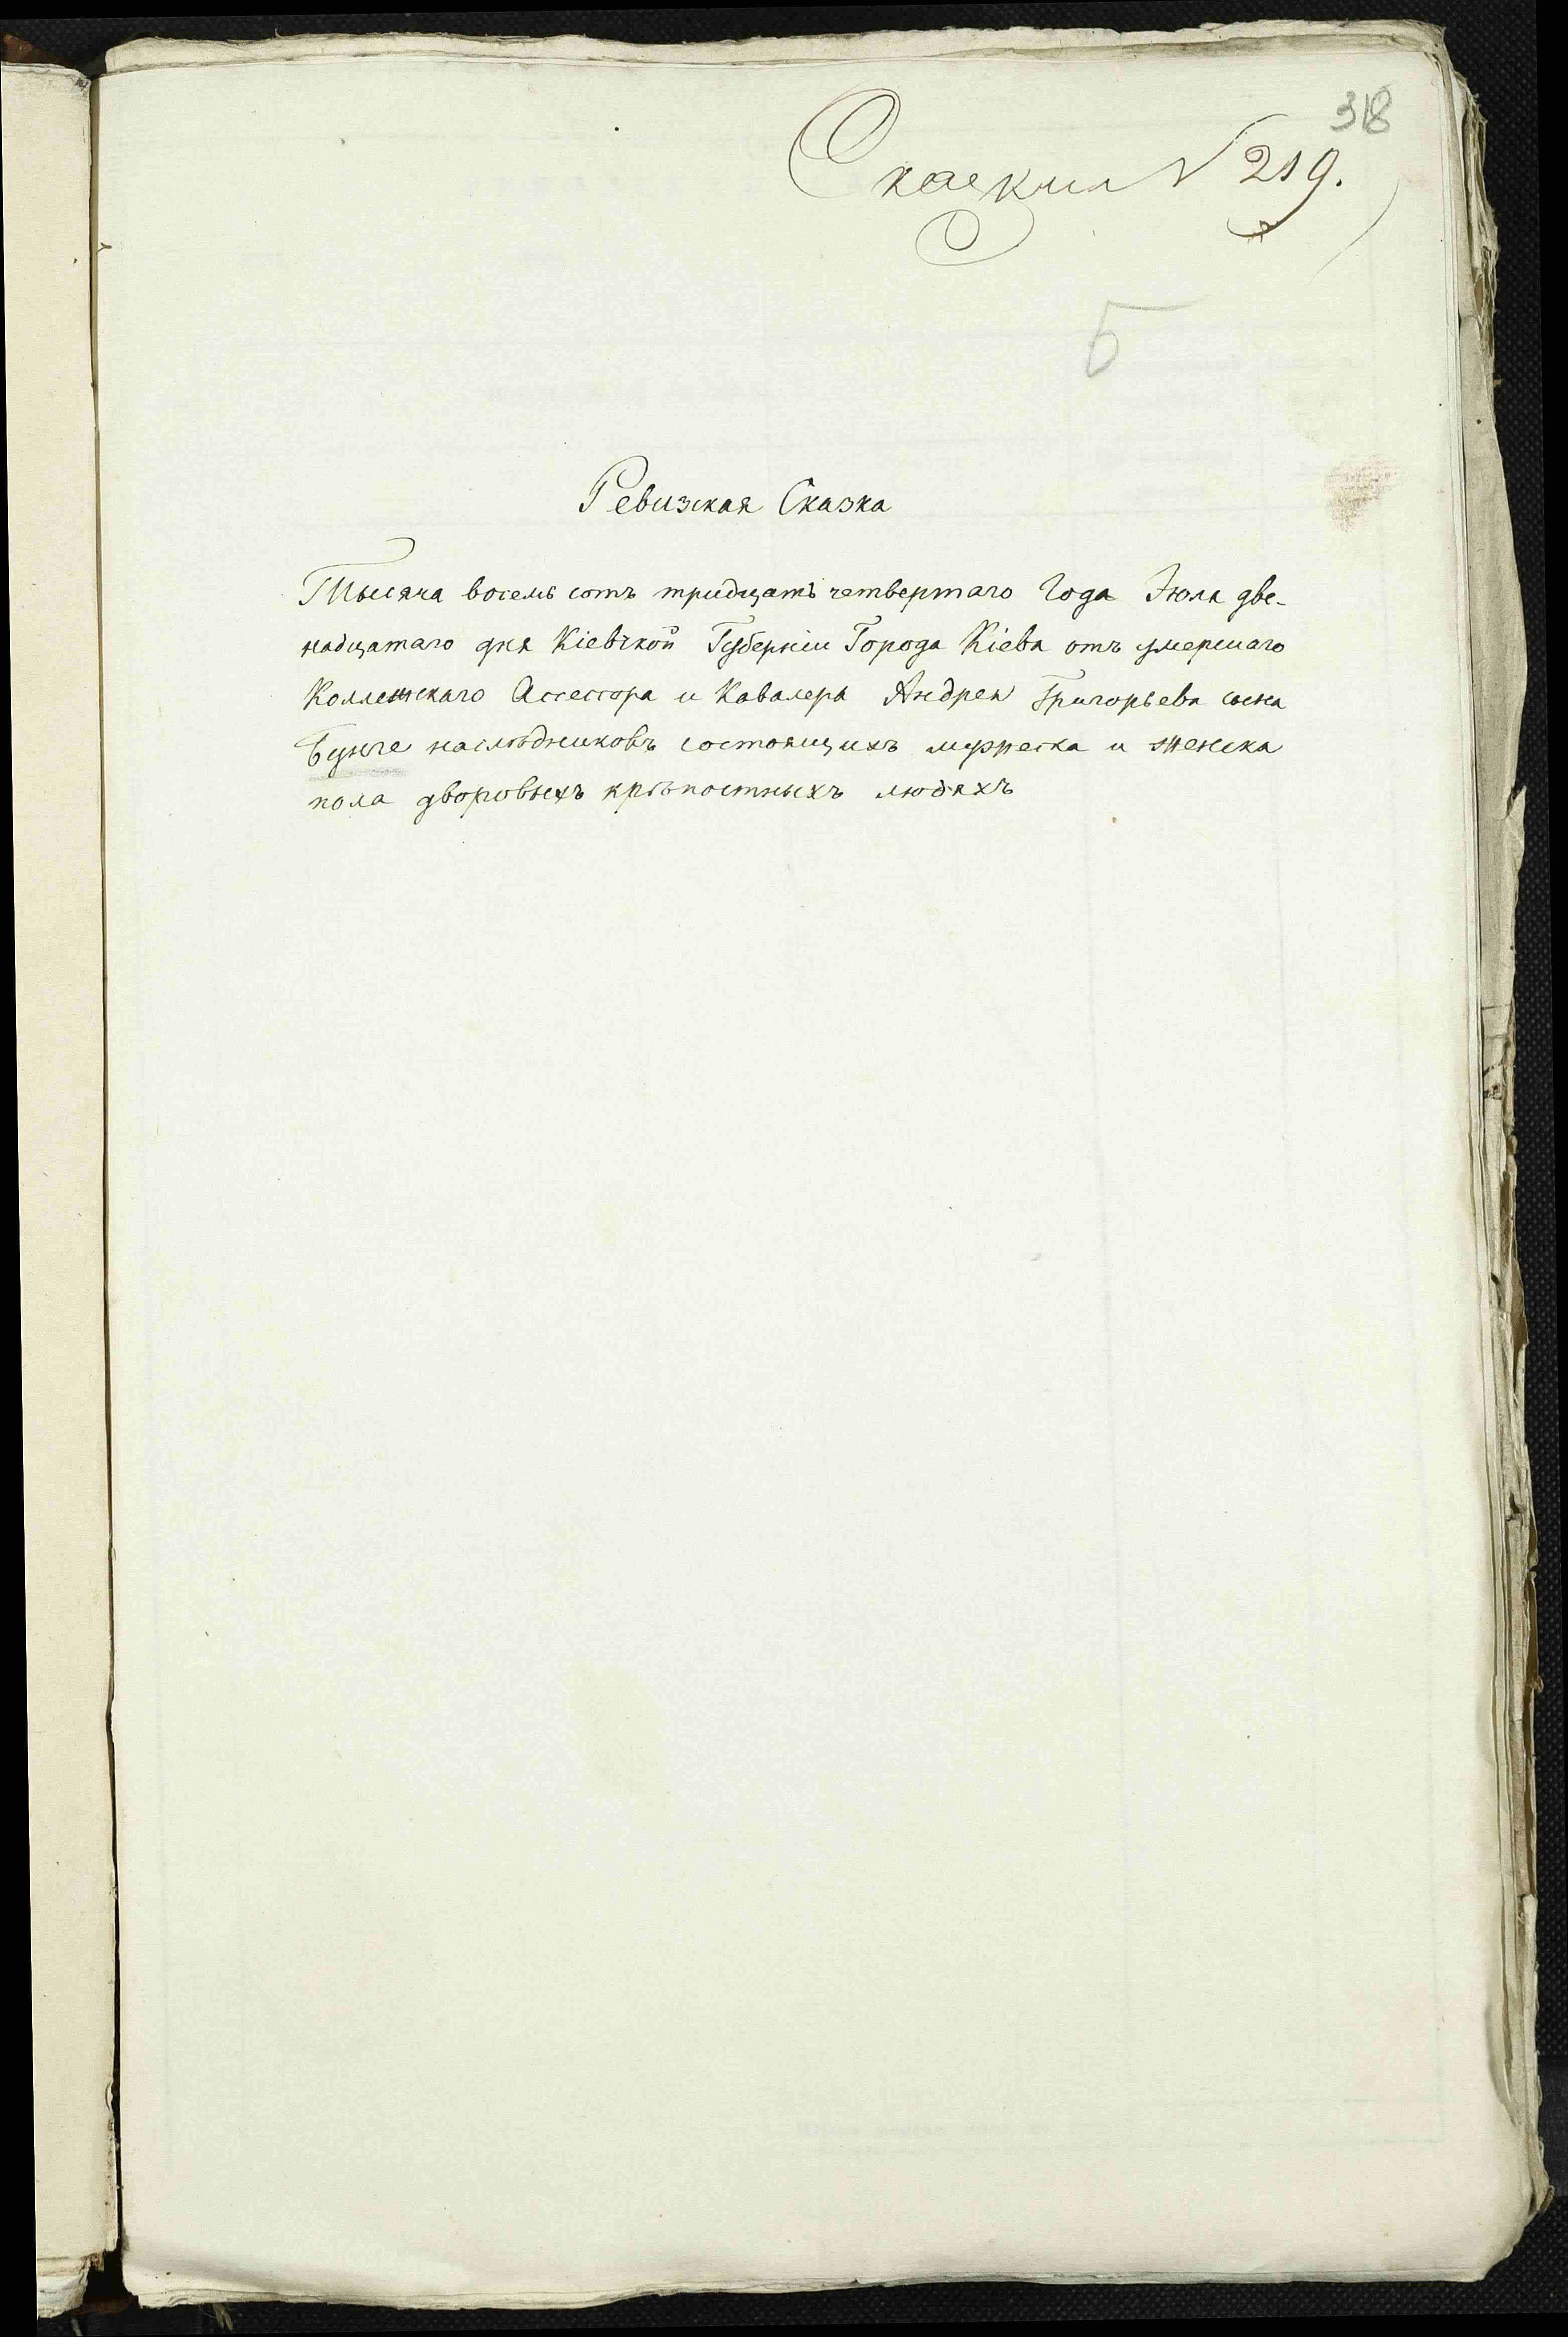 318
Сказка № 219.
Б
Ревизская Сказка
Тысяча восемь сотъ тридцать четвертаго Года Июля две-
надцатаго дня Кіевской Губерніи Города Кіева отъ умершаго
Коллежскаго Ассессора и Кавалера Андрея Григорьева сына
Бунге наслѣдниковъ состоящихъ мужеска и женска
пола дворовыхъ крѣпостныхъ людяхъ